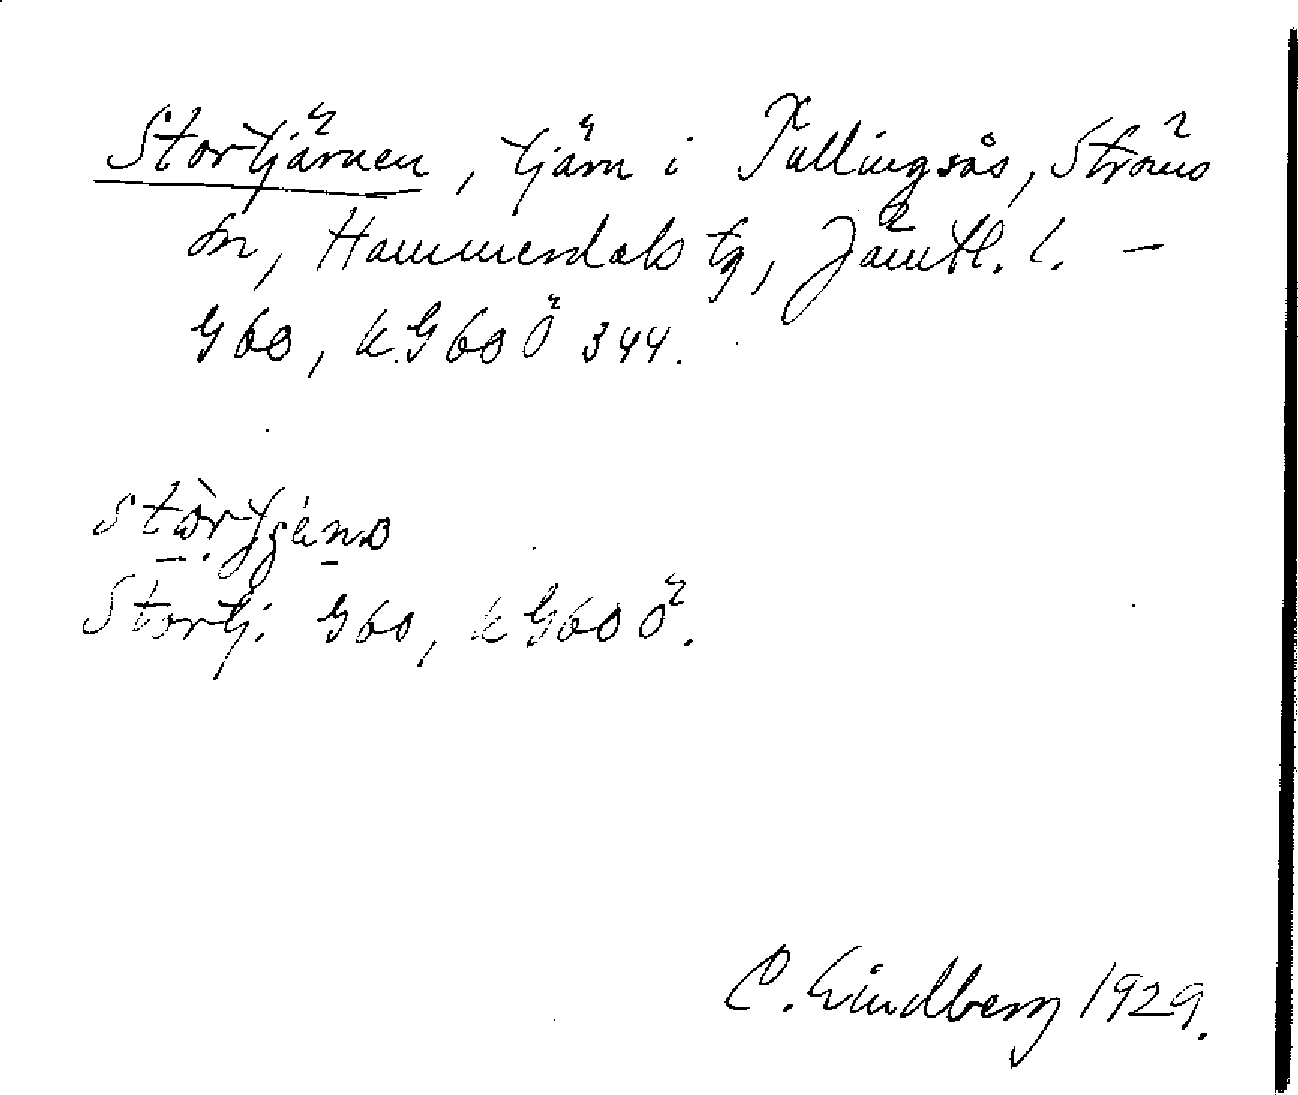 Stortjärnen, tjärn i Tullingsås, Ströms
sn, Hammerdals tg, Jämtl. l. –
G60, k. G60 Ö 344.
Stortj. G60, k G60 Ö.
C. Lindberg 1929.